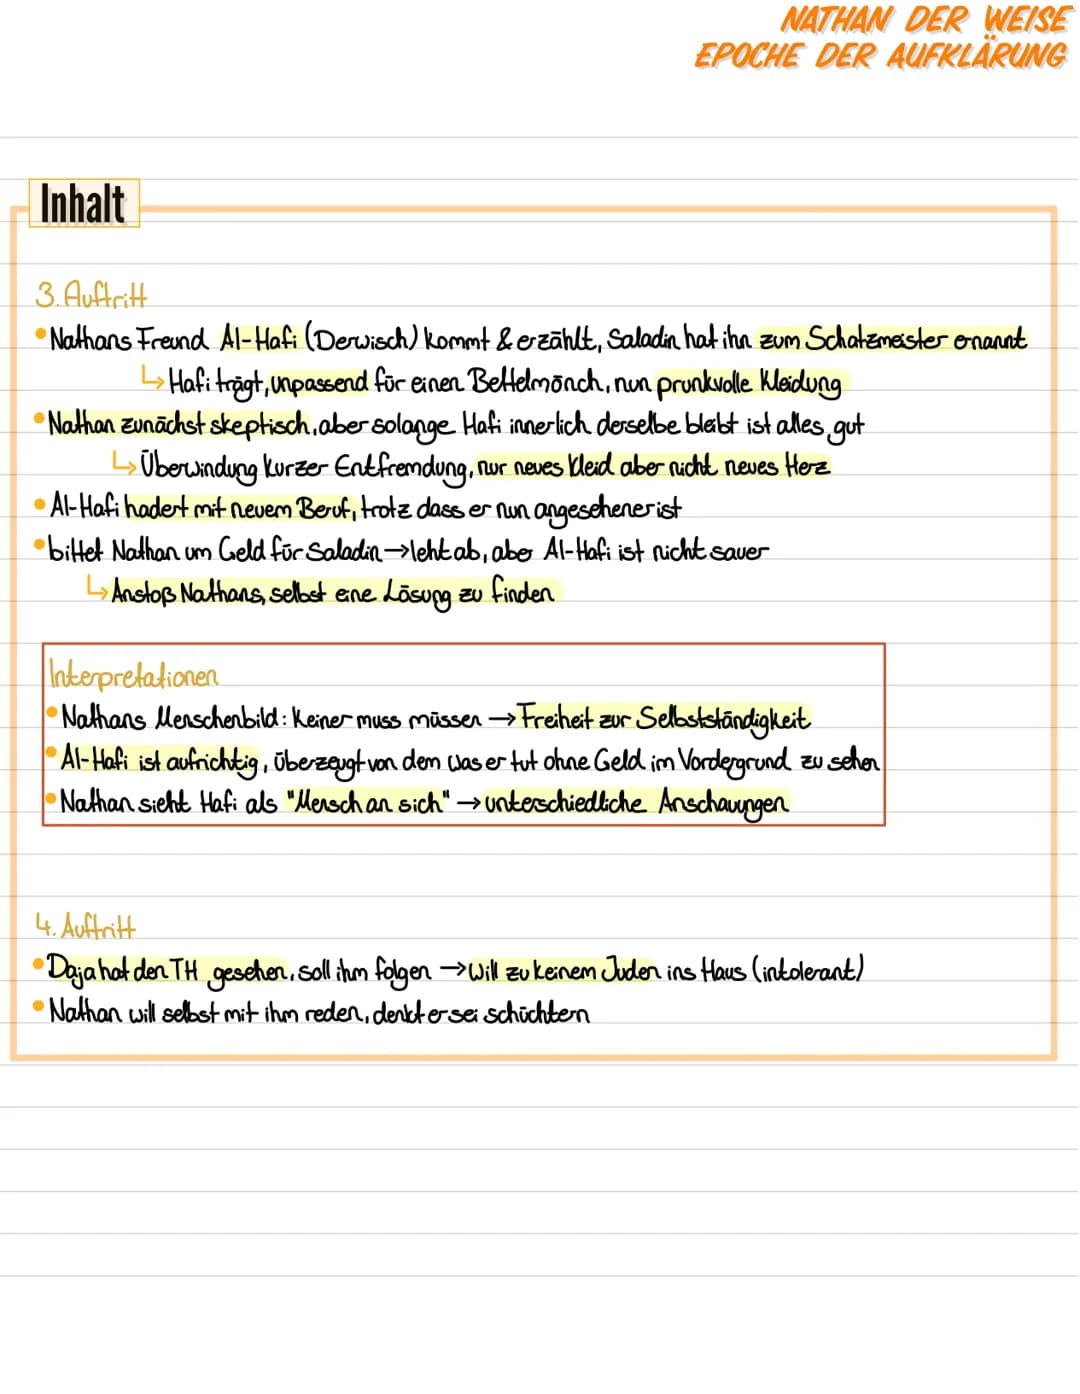 NATHAN DER WEISE
EPOCHE DER AUFKLÄRUNG
Inhalt
3. Auftritt
• Nathans Freund Al-Hafi (Derwisch) kommt & erzählt, Saladin hat ihn zum Schatzmeister ernannt
↳ Hafi trägt, unpassend für einen Bettelmönch, nun prunkvolle Kleidung
• Nathan zunächst skeptisch, aber solange Hafi innerlich derselbe bleibt ist alles gut
↳ Überwindung kurzer Entfremdung, nur neues Kleid aber nicht neues Herz
• Al-Hafi hadert mit neuem Beruf, trotz dass er nun angesehener ist
• bittet Nathan um Geld für Saladin → leht ab, aber Al-Hafi ist nicht sauer
↳ Anstoß Nathans, selbst eine Lösung zu finden
Interpretationen
• Nathans Menschenbild: Keiner muss müssen → Freiheit zur Selbstständigkeit
• Al-Hafi ist aufrichtig, überzeugt von dem was er tut ohne Geld im Vordergrund zu sehen
• Nathan sieht Hafi als "Mensch an sich" → unterschiedliche Anschauungen
4. Auftritt
• Daja hat den TH gesehen, soll ihm folgen → will zu keinem Juden ins Haus (intolerant)
• Nathan will selbst mit ihm reden, denkt er sei schüchtern